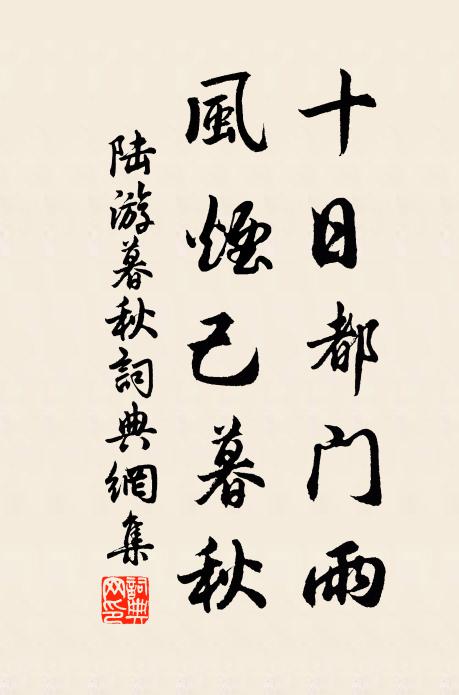 十日都门雨
風煙已暮秋
陆游暮秋詞典網集
詞典網印